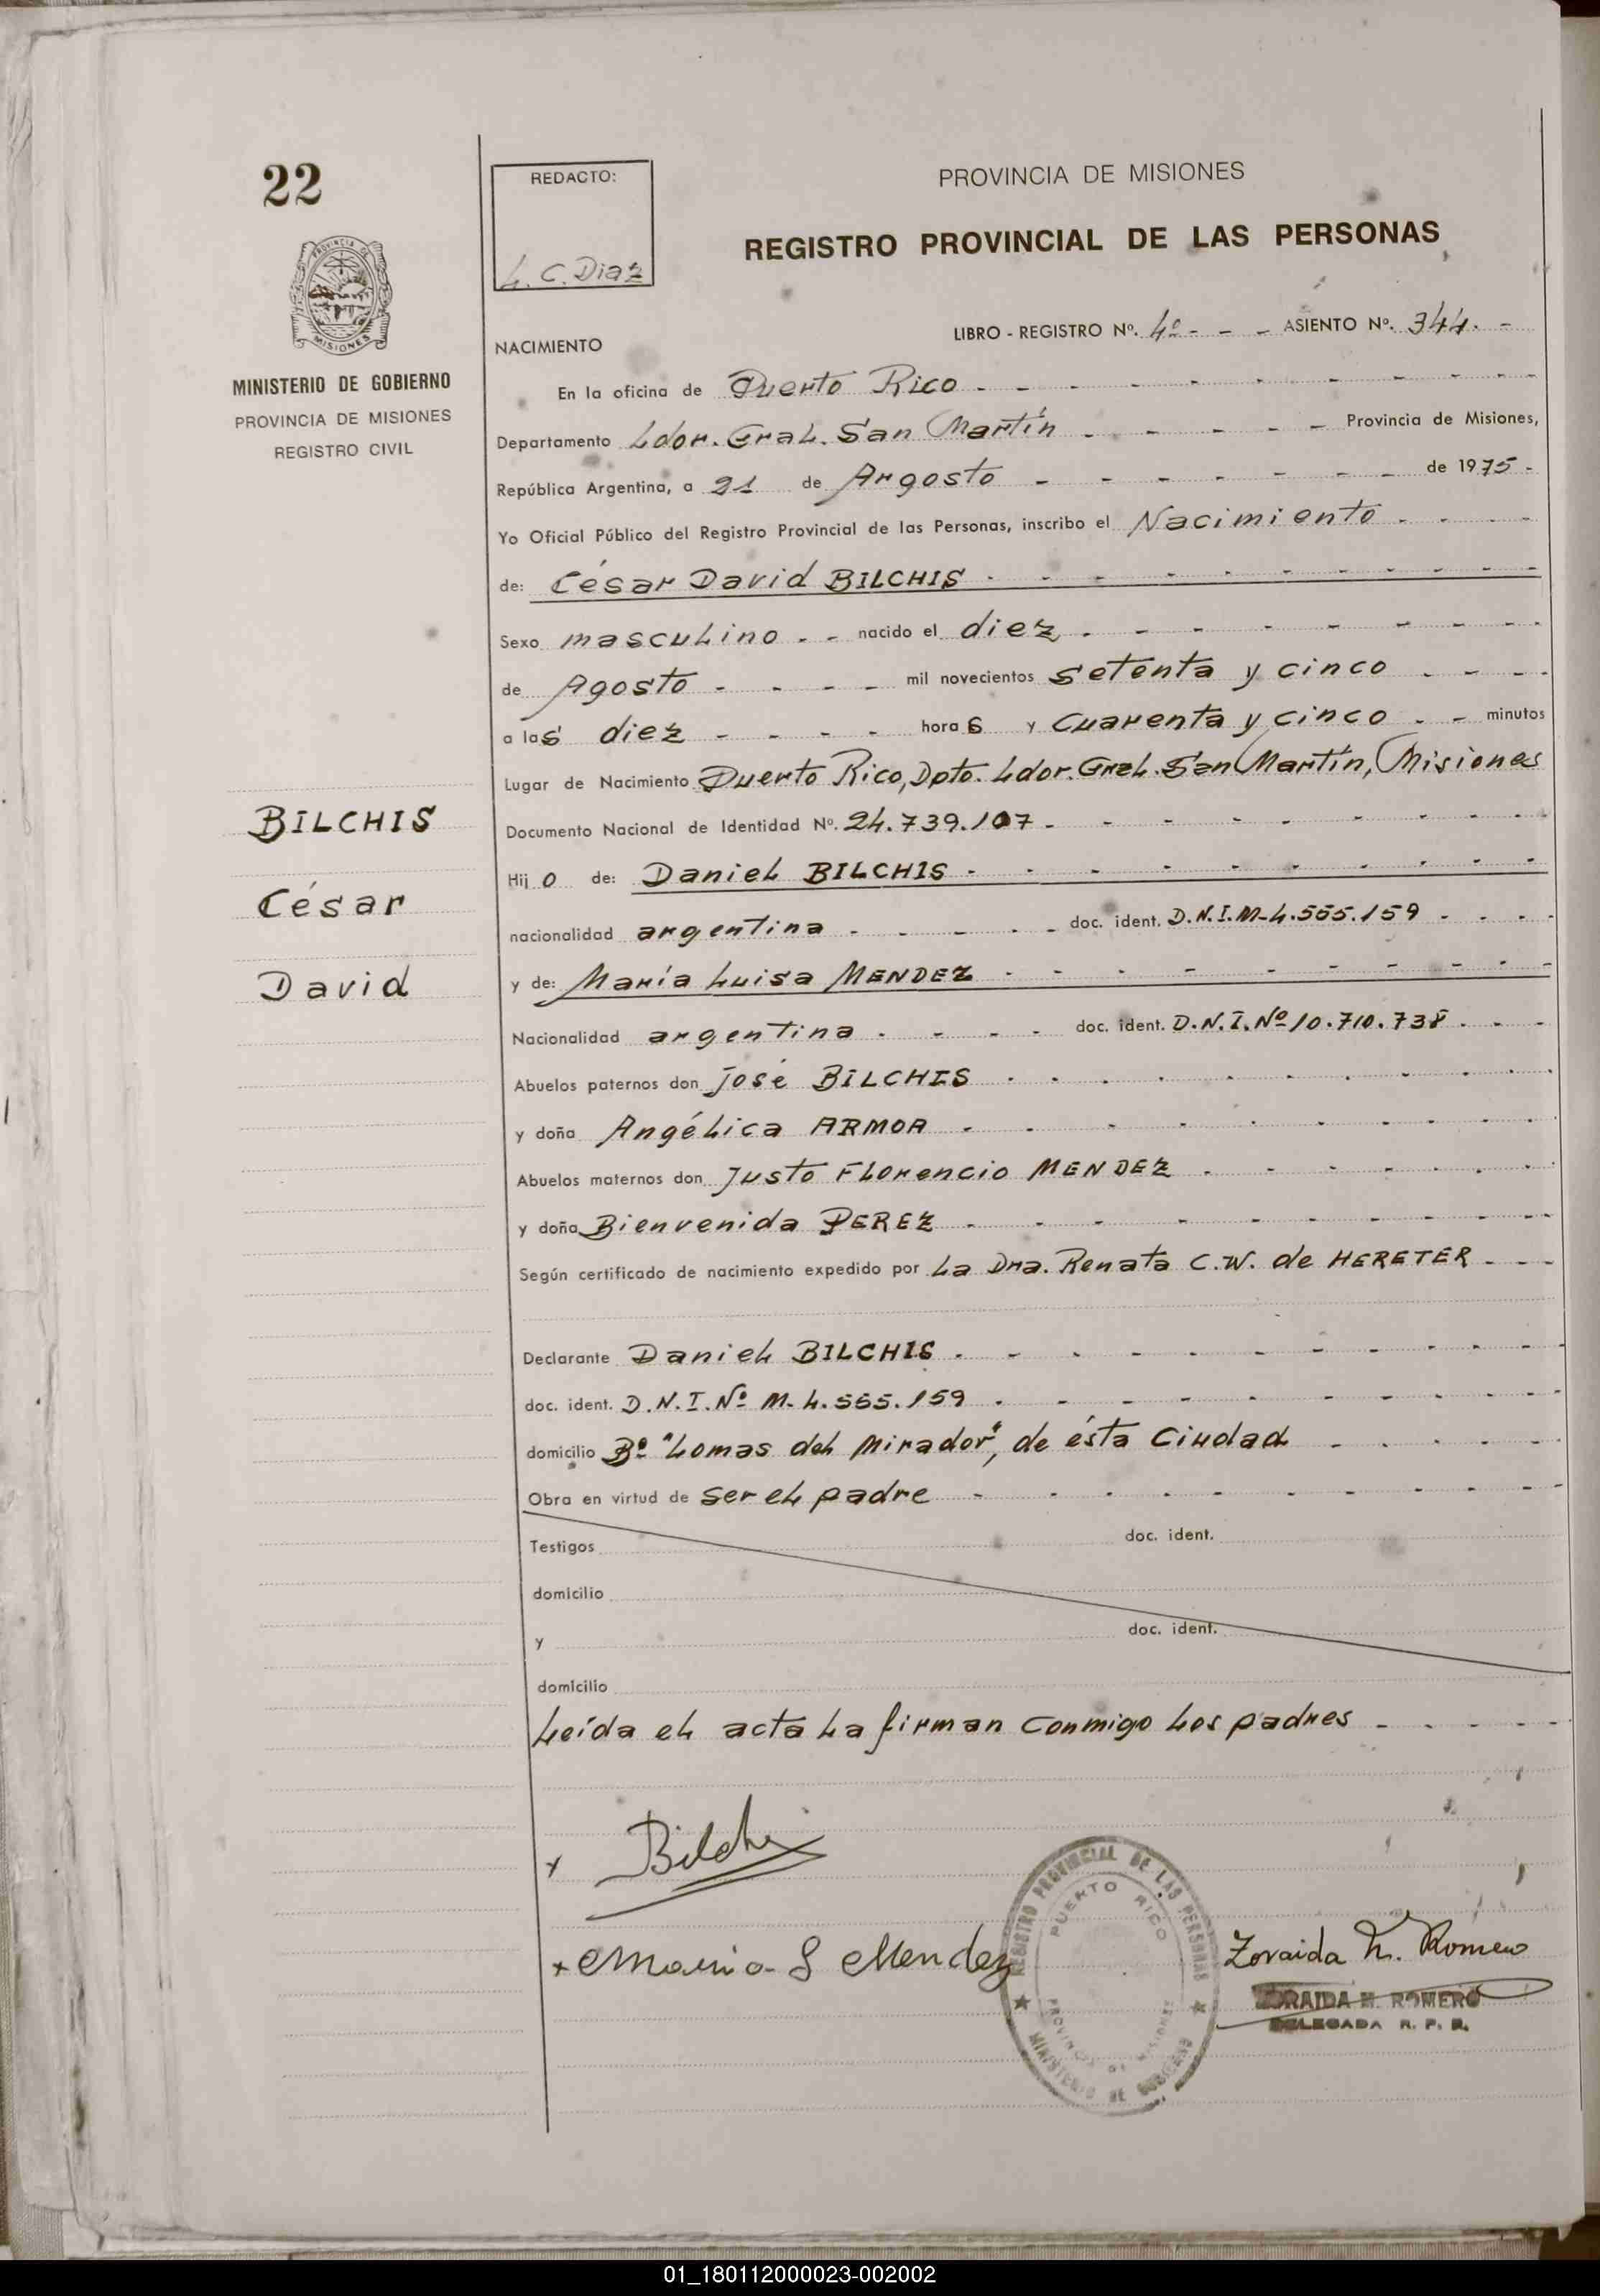 22
PROVINCIA DE
MISIONES
MINISTERIO DE GOBIERNO
PROVINCIA DE MISIONES
REGISTRO CIVIL
BILCHIS
César
David
REDACTO:
L. C. Diaz
PROVINCIA DE MISIONES
REGISTRO PROVINCIAL DE LAS PERSONAS
LIBRO - REGISTRO Nº. 4º - - - ASIENTO Nº. 344. -
NACIMIENTO
En la oficina de Puerto Rico - - - - - - - - - -
Departamento Ldor. Gral. San Martín - - - - - Provincia de Misiones,
República Argentina, a 21 de Argosto - - - - - - - de 1975 -
Yo Oficial Público del Registro Provincial de las Personas, inscribo el Nacimiento - - - -
de: César David BILCHIS - - - - - - - - - -
Sexo masculino - - nacido el diez - - - - - - - -
de Agosto - - - - mil novecientos setenta y cinco - - - -
a las diez - - - - horas y cuarenta y cinco - - minutos
Lugar de Nacimiento Puerto Rico, Dpto. Ldor. Gral. San Martín, Misiones
Documento Nacional de Identidad Nº. 24.739.107 - - - - - - - - -
Hijo de: Daniel BILCHIS - - - - - - - - - -
nacionalidad argentina - - - - - doc. ident. D.N.I.M-4.555.159 - - - -
y de: María Luisa MENDEZ - - - - - - - - - -
Nacionalidad argentina - - - - doc. ident. D.N.I. Nº 10.710.738 - - -
Abuelos paternos don José BILCHIS - - - - - - - - - -
y doña Angélica ARMOA - - - - - - - - -
Abuelos maternos don Justo Florencio MENDEZ - - - - - - -
y doña Bienvenida PEREZ - - - - - - - - - -
Según certificado de nacimiento expedido por la Dra. Renata C.W. de HERETER - - -
Declarante Daniel BILCHIS - - - - - - - - - - -
doc. ident. D.N.I. Nº M-4.555.159 - - - - - - - - - -
domicilio Bº "Lomas del Mirador", de ésta Ciudad - - - - -
Obra en virtud de ser el padre - - - - - - - - - -
Testigos doc. ident.
domicilio
y doc. ident.
domicilio
Leída el acta la firman conmigo los padres - - - - -
x Bilchis
x Maria L Mendez
REGISTRO PROVINCIAL DE LAS PERSONAS
PUERTO RICO
PROVINCIA DE MISIONES
MINISTERIO DE GOBIERNO
Zoraida M. Romero
ZORAIDA M. ROMERO
DELEGADA R. P. P.
01_180112000023-002002